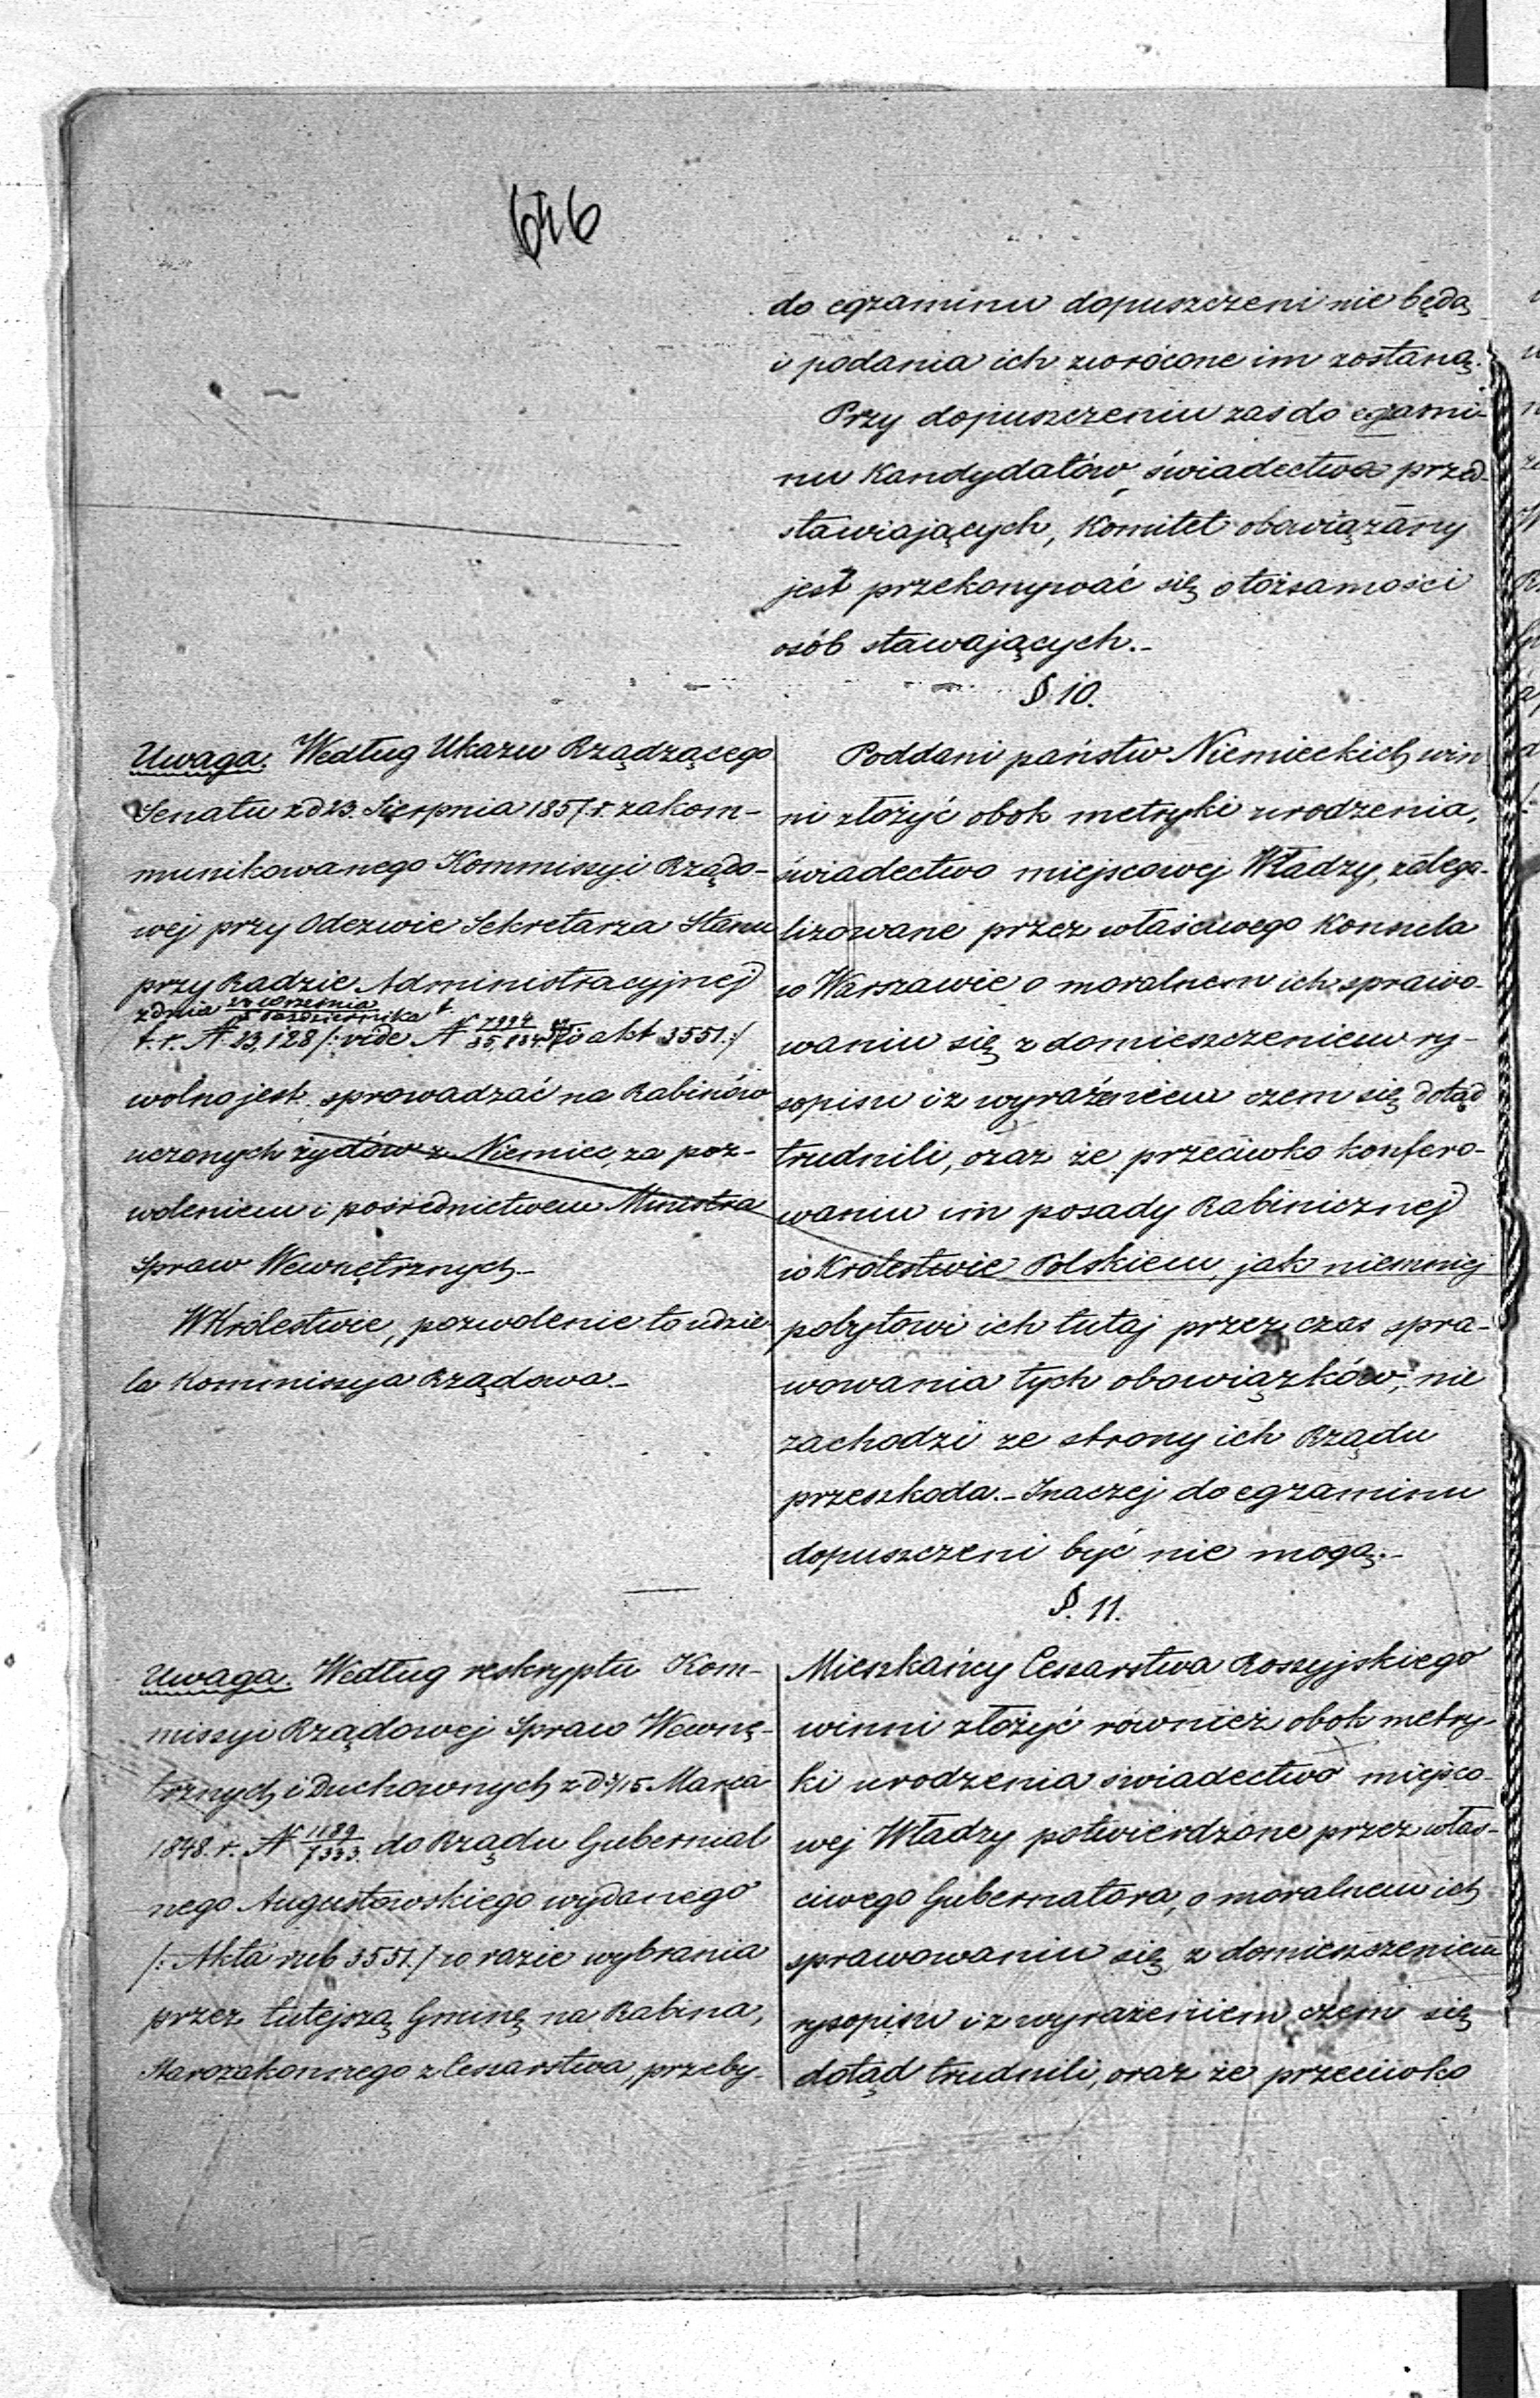 646
do egzaminu dopuszczeni nie będą
i podania ich zwrócone im zostaną.
Przy dopuszczeniu zaś do egzami-
nu Kandydatów, świadectwa przed-
stawiających, Komitet obowiązany
jest przekonywać się o tożsamości
osób stawających.-
§ 10.
Uwaga. Według Ukazu Rządzącego
Senatu z d 23. Sierpnia 1857. r. zakom-
munikowanego Kommissyi Rządo-
wej przy Odezwie Sekretarza Stanu
przy Radzie Administracyjnej
z dnia Września / Października t.
t. r. № 23,128 /: vide № akt 3551.:/
wolno jest sprowadzać na Rabinów
uczonych żydów z Niemiec, za poz-
woleniem i pośrednictwem Ministra
Spraw Wewnętrznych.-
W Królestwie, pozwolenie to udzie-
la Kommissya Rządowa.-
Poddani państw Niemieckich win-
ni złożyć obok metryki urodzenia,
świadectwo miejscowej Władzy, zalega-
lizowane przez właściwego Konsula
w Warszawie o moralnem ich sprawo-
waniu się z domieszczeniem ry-
sopisu i z wyrażeniem czem się dotąd
trudnili, oraz że przeciwko konfero-
waniu im posady Rabinicznej
w Królestwie Polskiem, jak niemniej
pobytowi ich tutaj przez czas spra-
wowania tych obowiązków, nie
zachodzi ze strony ich Rządu
przeszkoda.- Inaczej do egzaminu
dopuszczeni być nie mogą.-
§. 11.
Uwaga. Według reskryptu Kom-
missyi Rządowej Spraw Wewnę-
trznych i Duchownych z d 3/15 Marca
1848. r. № 1189/7333. do Rządu Gubernial
nego Augustowskiego wydanego
/: Akta rub 3551./ w razie wybrania
przez tutejszą Gminę na Rabina,
Starozakonnego z Cesarstwa, przeby-
Mieszkańcy Cesarstwa Rossyjskiego
winni złożyć również obok metry-
ki urodzenia świadectwo miejsco-
wej Władzy potwierdzone przez właś-
ciwego Gubernatora, o moralnem ich
sprawowaniu się z domieszczeniem
rysopisu i z wyrażeniem czem się
dotąd trudnili, oraz że przeciwko